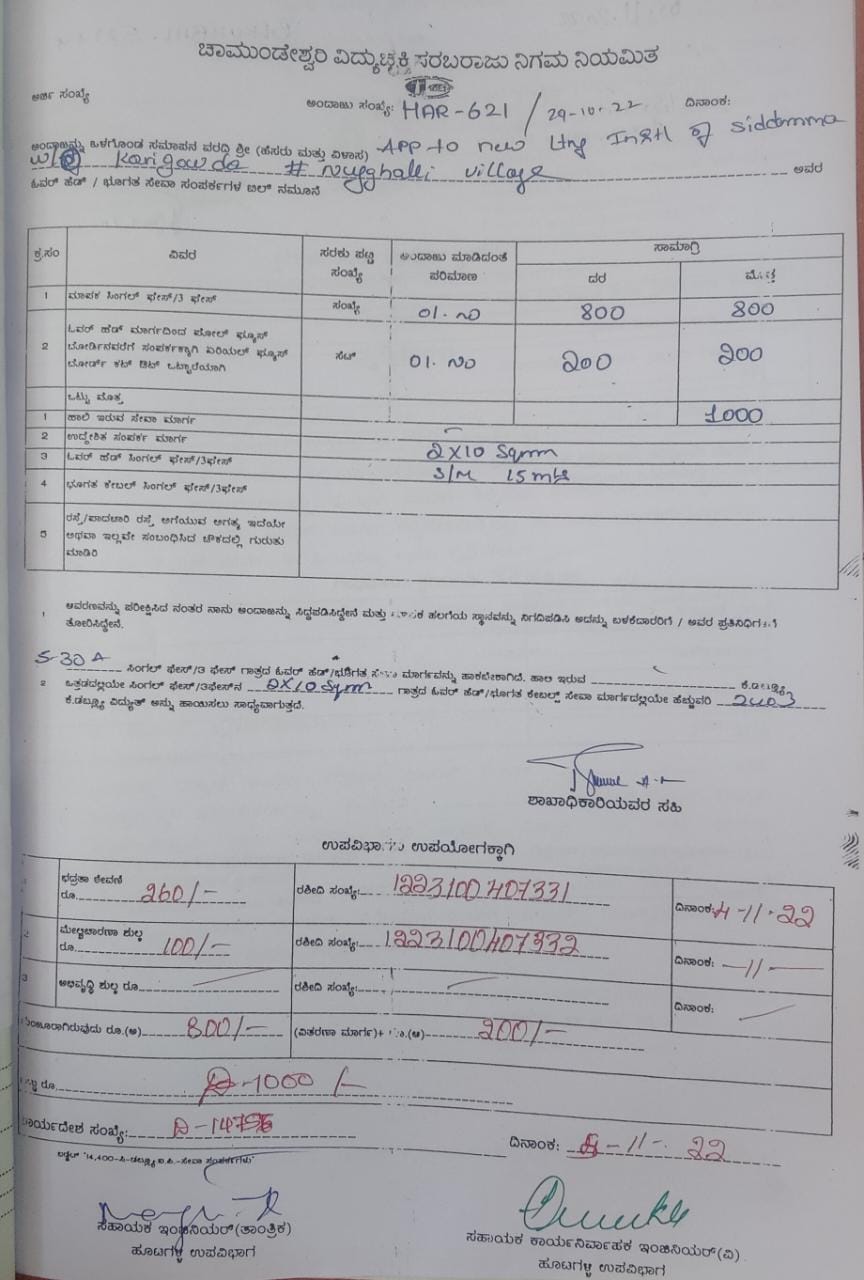 ಚಾಮುಂಡೇಶ್ವರಿ ವಿದ್ಯುಚ್ಛಕ್ತಿ ಸರಬರಾಜು ನಿಗಮ ನಿಯಮಿತ
ಅರ್ಜಿ ಸಂಖ್ಯೆ ಅಂದಾಜು ಸಂಖ್ಯೆ: HAR-621 / 29-10-22 ದಿನಾಂಕ:
ಅಂದಾಜನ್ನು ಒಳಗೊಂಡ ಸಮಾಪನ ವರದಿ ಶ್ರೀ (ಹೆಸರು ಮತ್ತು ವಿಳಾಸ) APP to new Ltng Instl of Siddamma
w/o Karigowda # Nugghalli village ಅವರ
ಓವರ್ ಹೆಡ್ / ಭೂಗತ ಸೇವಾ ಸಂಪರ್ಕಗಳ ಬಿಲ್ ನಮೂನೆ
ಕ್ರ.ಸಂ ವಿವರ ಸರಕು ಪಟ್ಟಿ ಸಂಖ್ಯೆ ಅಂದಾಜು ಮಾಡಿದಂತೆ ಪರಿಮಾಣ ಸಾಮಾಗ್ರಿ
ದರ ಮೊತ್ತ
1 ಮಾಪಕ ಸಿಂಗಲ್ ಫೇಸ್/3 ಫೇಸ್ ಸಂಖ್ಯೆ 01. ನಂ 800 800
2 ಓವರ್ ಹೆಡ್ ಮಾರ್ಗದಿಂದ ಪೋಲ್ ಫ್ಯೂಸ್
ಬೋರ್ಡಿನವರೆಗೆ ಸಂಪರ್ಕಕ್ಕಾಗಿ ಏರಿಯಲ್ ಫ್ಯೂಸ್ ಸೆಟ್ 01. ನಂ ೨೦೦ ೨೦೦
ಬೋರ್ಡ್ ಕಟ್ ಔಟ್ ಒಟ್ಟಾರೆಯಾಗಿ
ಒಟ್ಟು ಮೊತ್ತ 1000
1 ಹಾಲಿ ಇರುವ ಸೇವಾ ಮಾರ್ಗ
2 ಉದ್ದೇಶಿತ ಸಂಪರ್ಕ ಮಾರ್ಗ
3 ಓವರ್ ಹೆಡ್ ಸಿಂಗಲ್ ಫೇಸ್/3ಫೇಸ್ 2X10 Sqmm
4 ಭೂಗತ ಕೇಬಲ್ ಸಿಂಗಲ್ ಫೇಸ್/3ಫೇಸ್ S/M 15 mts
5 ರಸ್ತೆ/ಪಾದಚಾರಿ ರಸ್ತೆ ಅಗೆಯುವ ಅಗತ್ಯ ಇದೆಯೇ
ಅಥವಾ ಇಲ್ಲವೇ ಸಂಬಂಧಿಸಿದ ಚೌಕದಲ್ಲಿ ಗುರುತು
ಮಾಡಿರಿ
1 ಆವರಣವನ್ನು ಪರೀಕ್ಷಿಸಿದ ನಂತರ ನಾನು ಅಂದಾಜನ್ನು ಸಿದ್ಧಪಡಿಸಿದ್ದೇನೆ ಮತ್ತು ಹಲಗೆಯ ಸ್ಥಾನವನ್ನು ನಿಗದಿಪಡಿಸಿ ಅದನ್ನು ಬಳಕೆದಾರರಿಗೆ / ಅವರ ಪ್ರತಿನಿಧಿಗಳಿಗೆ
ತೋರಿಸಿದ್ದೇನೆ.
5-30 A ಸಿಂಗಲ್ ಫೇಸ್/3 ಫೇಸ್ ಗಾತ್ರದ ಓವರ್ ಹೆಡ್/ಭೂಗತ ಸೇವಾ ಮಾರ್ಗವನ್ನು ಹಾಕಬೇಕಾಗಿದೆ. ಹಾಲಿ ಇರುವ ಕೆ.ಡಬ್ಲ್ಯೂ
2 ಒತ್ತಡದಲ್ಲಿಯೇ ಸಿಂಗಲ್ ಫೇಸ್/3ಫೇಸ್‌ನ 2X10 Sqmm ಗಾತ್ರದ ಓವರ್ ಹೆಡ್/ಭೂಗತ ಕೇಬಲ್ಸ್ ಸೇವಾ ಮಾರ್ಗದಲ್ಲಿಯೇ ಹೆಚ್ಚುವರಿ
ಕೆ.ಡಬ್ಲ್ಯೂ ವಿದ್ಯುತ್ ಅನ್ನು ಹಾಯಿಸಲು ಸಾಧ್ಯವಾಗುತ್ತದೆ.
ಶಾಖಾಧಿಕಾರಿಯವರ ಸಹಿ
ಉಪವಿಭಾಗದ ಉಪಯೋಗಕ್ಕಾಗಿ
ಭದ್ರತಾ ಠೇವಣಿ
ರೂ. 260/- ರಶೀದಿ ಸಂಖ್ಯೆ: 1223100407331 ದಿನಾಂಕ: 4-11-22
2 ಮೇಲ್ವಿಚಾರಣಾ ಶುಲ್ಕ
ರೂ. 100/- ರಶೀದಿ ಸಂಖ್ಯೆ: 1223100407332 ದಿನಾಂಕ: -11-
3 ಅಭಿವೃದ್ಧಿ ಶುಲ್ಕ ರೂ. ರಶೀದಿ ಸಂಖ್ಯೆ: ದಿನಾಂಕ:
ಮಂಜೂರಾಗಿರುವುದು ರೂ.(ಅ) 800/- (ವಿತರಣಾ ಮಾರ್ಗ)+ ರೂ.(ಆ) 200/-
ಒಟ್ಟು ರೂ. 1000/-
ಕಾರ್ಯಾದೇಶ ಸಂಖ್ಯೆ: ದಿನಾಂಕ: 4-11-22
ಸಹಾಯಕ ಇಂಜಿನಿಯರ್(ತಾಂತ್ರಿಕ) ಸಹಾಯಕ ಕಾರ್ಯನಿರ್ವಾಹಕ ಇಂಜಿನಿಯರ್(ವಿ)
ಹೂಟಗಳ್ಳಿ ಉಪವಿಭಾಗ ಹೂಟಗಳ್ಳಿ ಉಪವಿಭಾಗ